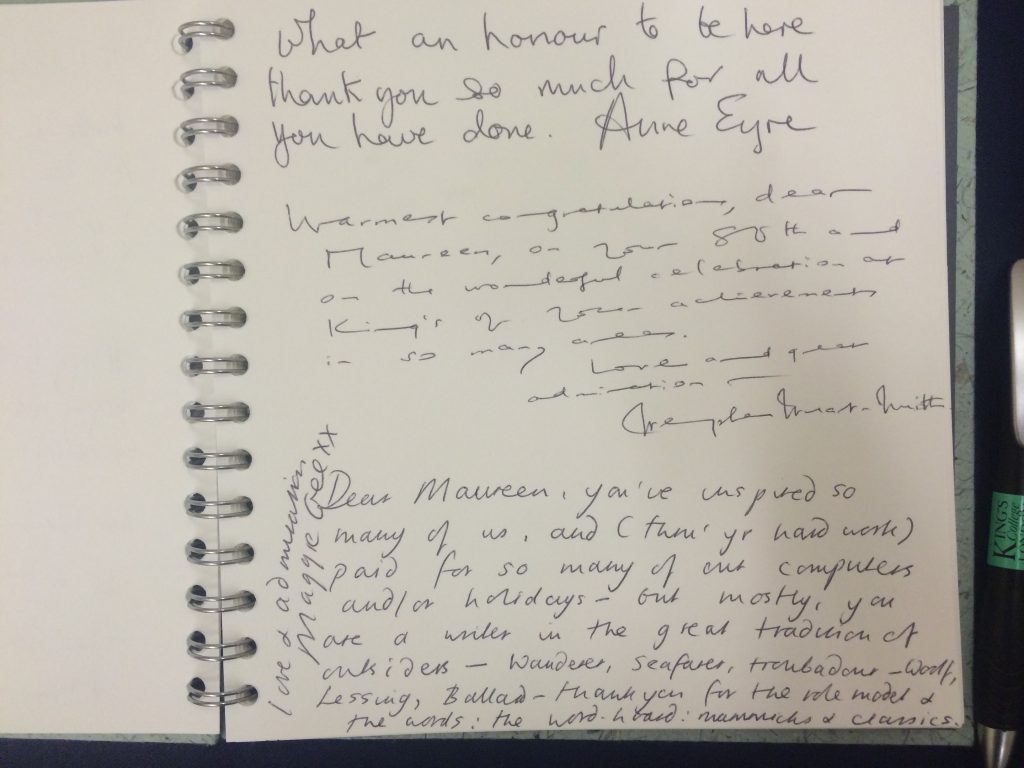 What an honour to be here
thank you so much for all
you have done. Anne Eyre
Warmest congratulations, dear
Maureen, on your 88th and
on the wonderful celebration at
King's of your achievements
in so many areas.
Love and great
admiration —
Dear Maureen, you've inspired so
many of us, and (thru' yr hard work)
paid for so many of our computers
and/or holidays – but mostly, you
are a writer in the great tradition of
outsiders – Wanderer, Seafarer, troubadour – Woolf,
Lessing, Ballard – thank you for the role model &
the words: the word-hoard: mammocks & classics.
Love & admiration
Maggie Gee xx
KINGS
College